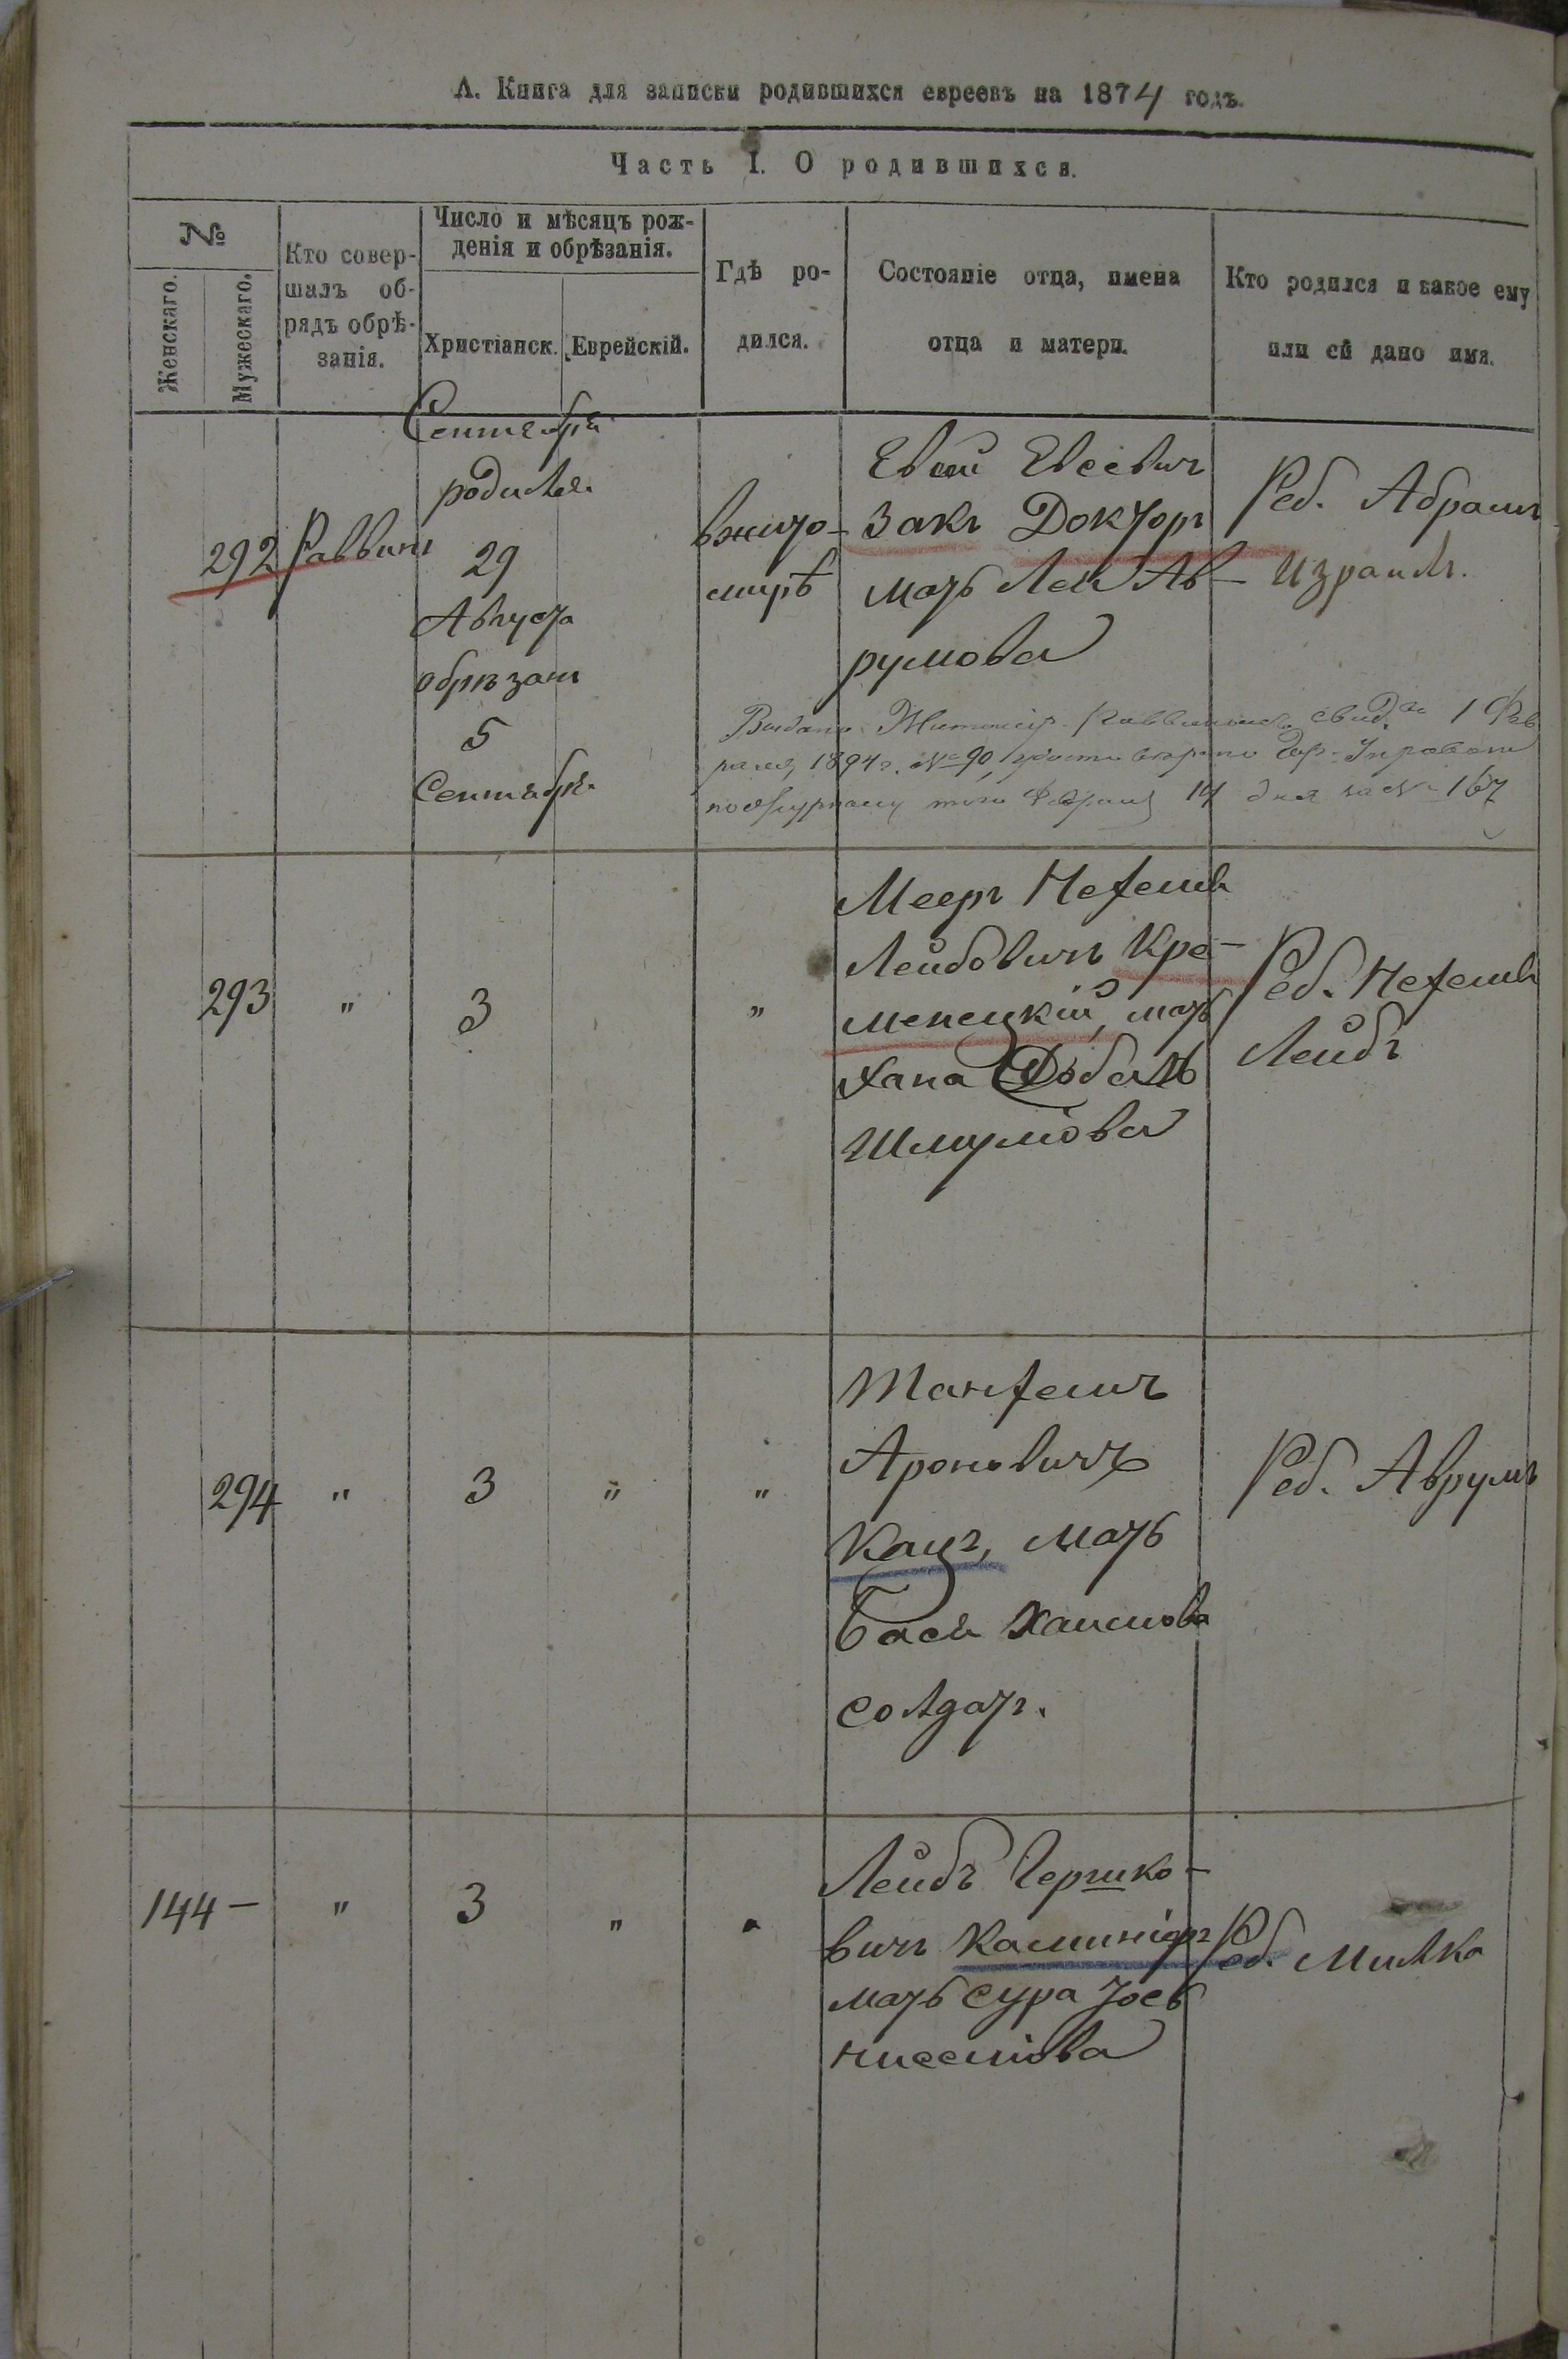 А. Книга для записки родившихся евреевъ на 1874 годъ.
Часть I. О родившихся.
№
Женскаго.
Мужескаго.
Кто совер-
шалъ об-
рядъ обрѣ-
занія.
Число и мѣсяцъ рож-
денія и обрѣзанія.
Христіанск.
Еврейскій.
Гдѣ ро-
дился.
Состояніе отца, имена
отца и матери.
Кто родился и какое ему
или ей дано имя.
Сентября
292
Раввинъ
родился
29
Августа
обрѣзанъ
5
Сентября
вжито-
мирѣ
Евсей Евсевичъ
Закъ Докторъ
мать Лея Ав-
румова
Реб. Абрамъ
Израиль.
Выдано Житомір. свид. 1 Фев
раля 1894 г. №90,
14 дня за № 167
293
"
3
"
Мееръ Нехемів
Лейбовичъ Кре-
менецкій, мать
Хана Добель
Шмулiова
Реб. Нехемів
Лейбъ
294
"
3
"
"
Ароновичъ
Кацъ, мать
Бася Хаимова
солдатъ.
Реб. Аврумъ
144 –
"
3
"
"
Лейбъ Гершко-
вичъ Каминіоръ
мать Сура Іось
Ниссеніова
Реб. Милка